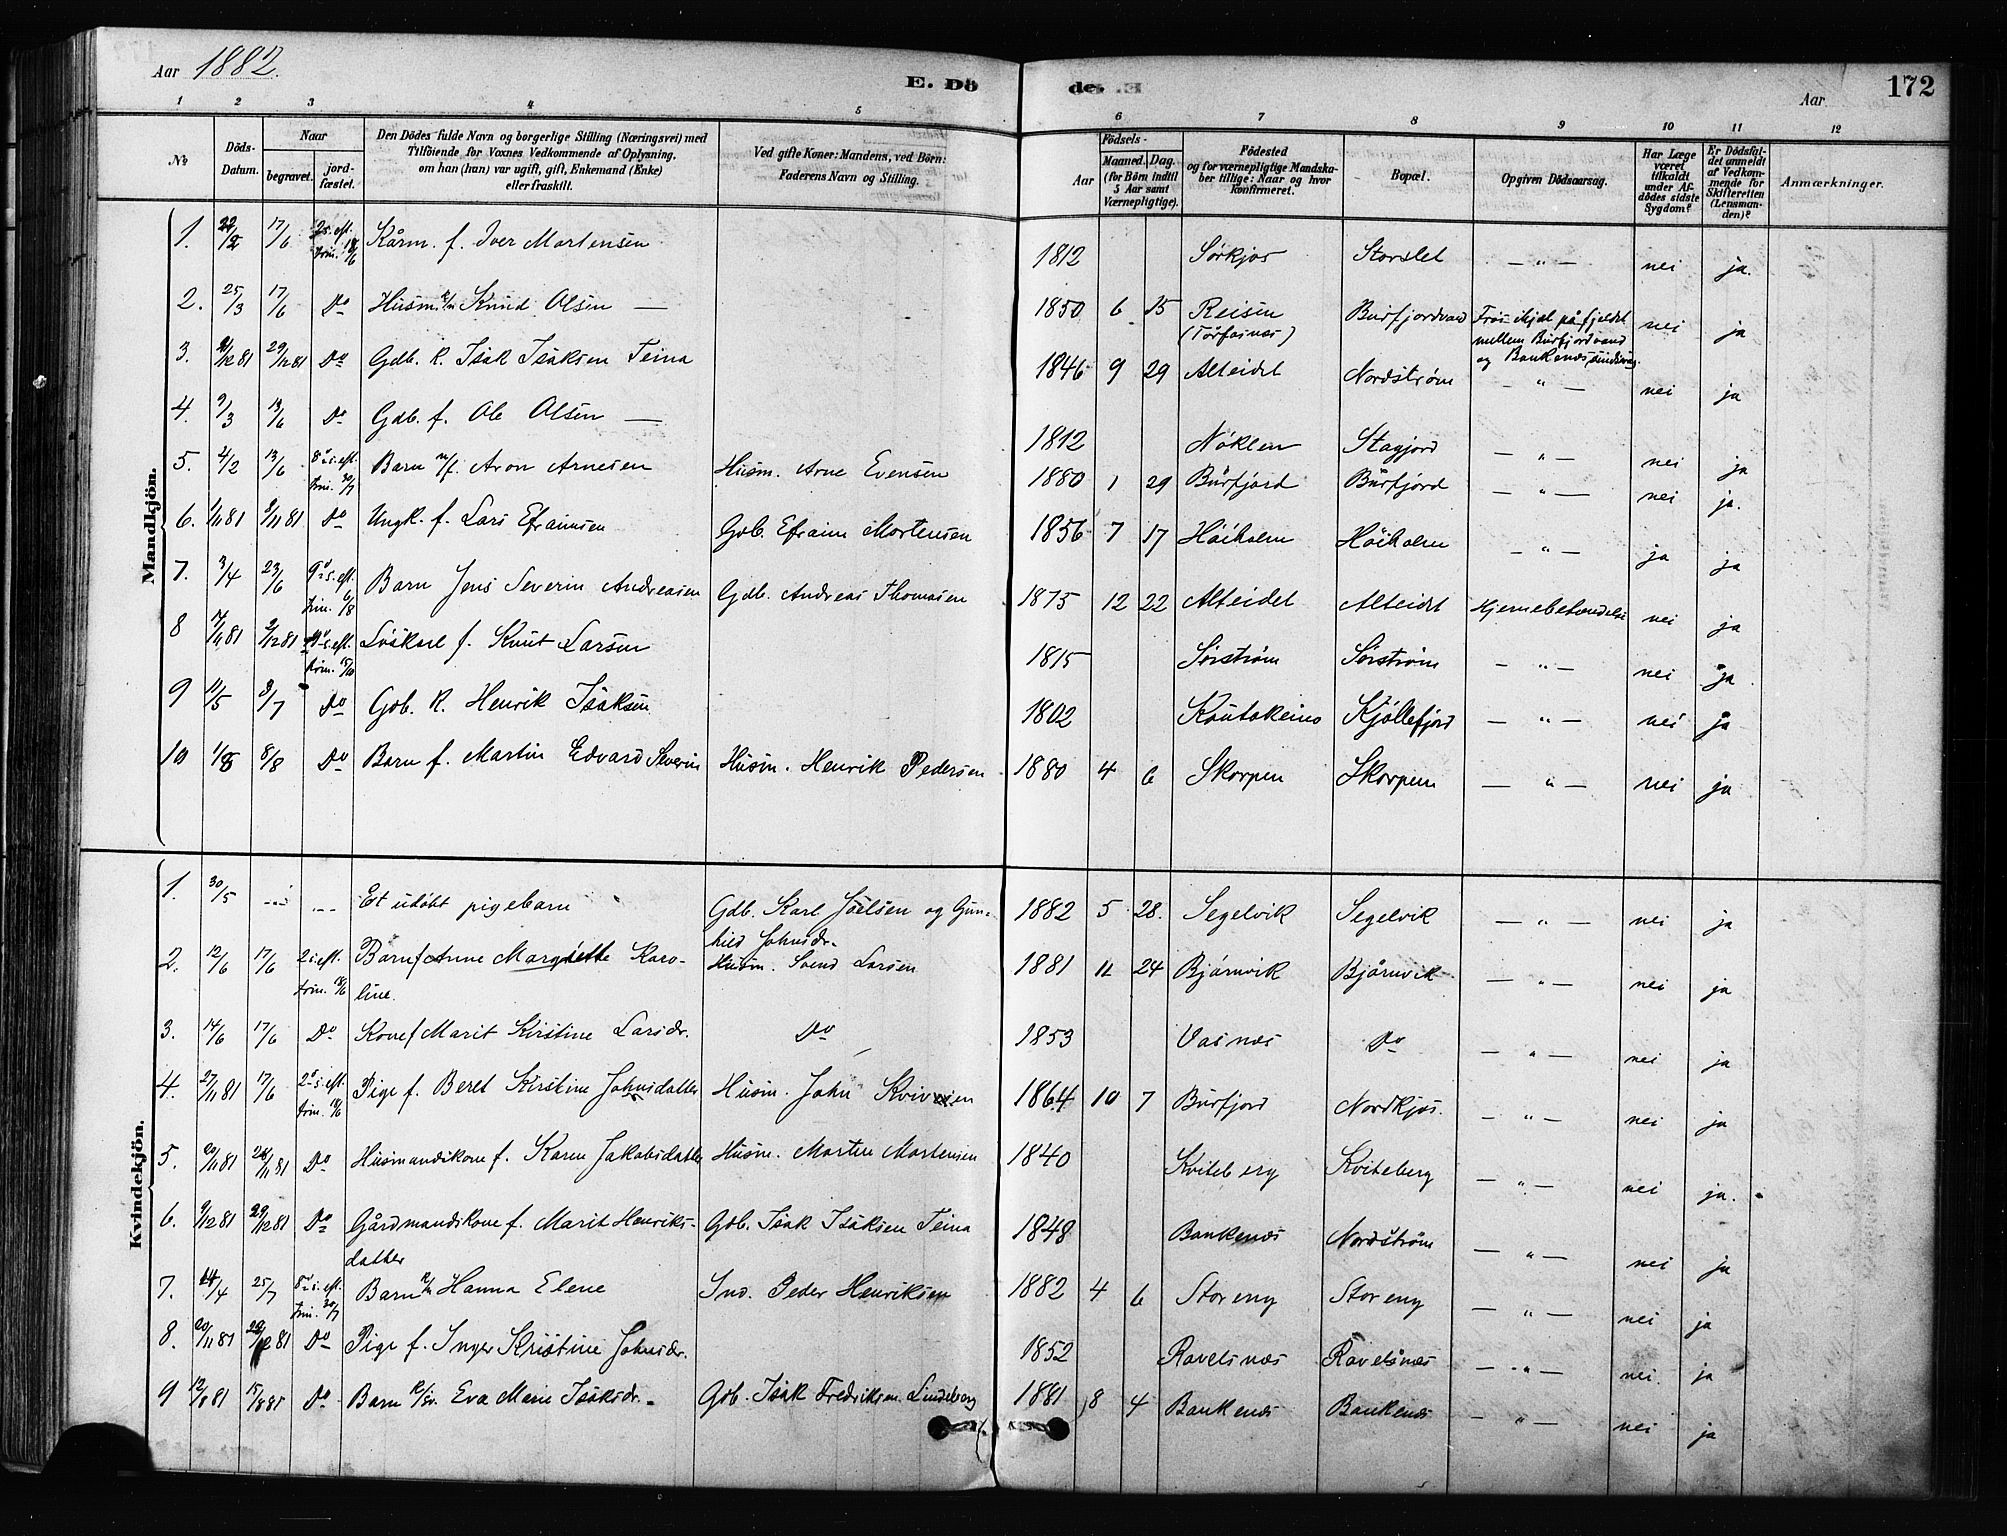 Aar 1882.
E. Dö
de. E
172
Aar
1 2 3 4 5 6 7 8 9 10 11 12
No
Döds-Datum.
Naar
begravet.
jord-fæstet.
Den Dödes fulde Navn og borgerlige Stilling (Næringsvei) med
Tilföiende for Voxnes Vedkommende af Oplysning,
om han (hun) var ugift, gift, Enkemand (Enke)
eller fraskilt.
Ved gifte Koner: Mandens, ved Börn:
Faderens Navn og Stilling.
Födsels-
Aar
Maaned. Dag.
(for Börn indtil
5 Aar samt
Værnepligtige).
Födested
og for værnepligtige Mandska-
ber tillige: Naar og hvor
konfirmeret.
Bopæl.
Opgiven Dödsaarsag.
Har Læge
været
tilkaldt
under Af-
dödes sidste
Sygdom?
Er Dödsfal-
det anmeldt
af Vedkom-
mende for
Skifteretten
(Lensman-
den)?
Anmærkninger.
Mandkjön.
1. 22/2 17/6 2 s. eft. trin. 18/6 Kårm. f. Iver Mortensen 1812 Sörkjos Storslet — " — nei ja.
2. 25/3 17/6 Do Husm. K/n Knud Olsen — 1850 6 15 Reisen Burfjordvand Frös ihjæl på fjeldet nei ja
mellem Burfjordvand
og Bankenæs
3. 12 81 29/12 81 Do Gdb. K. Isak Isaksen Teina 1846 9 29 Alteidet Nordström — " — nei ja
4. 9/3 13/6 Do Gdb. f. Ole Olsen — 1812 Nöklen Stagjord — " — nei ja
5. 2/2 13/6 8 s. eft. trin. 30/7 Barn n/f. Aron Arnesen Husm. Arne Evensen 1880 1 29 Burfjord Burfjord — " — nei ja.
6. 1/11 81 3/11 81 Do Ungk. f. Lars Efraimsen Gdb. Efraim Mortensen 1856 7 17 Höiholm Höiholm — " — ja ja
7. 3/4 23/6 9 s. eft. trin. 6/8 Barn Jens Severin Andreasen Gdb. Andreas Thomasen 1875 12 22 Alteidet Alteidet Hjernebetændelse nei ja
8 17/11 81 2/12 81 s. eft. trin. 15/10 Löskarl f. Knut Larsen 1815 Sörström Sörström — " — nei ja.
9 11/5 3/7 Do Gdb. K. Henrik Isaksen 1802 Koutokeino Kjöllefjord — " — nei ja
10 1/8 8/8 Do Barn f. Martin Edvard Severin Husm. Henrik Pedersen 1880 4 6 Skorpen Skorpen — " — nei ja
Kvindekjön.
1. 30/5 --- --- Et udöbt pigebarn Gdb. Karl Joelsen og Gun- 1882 5 28. Segelvik Segelvik — " — nei ja
hild Johnsdr.
2. 12/6 17/6 2 s. eft. trin. 18/6 Barn f Anne Margrethe Karo- Husm. Svend Larsen 1881 11 24 Björnvik Björnvik — " — nei ja
line.
3. 14/6 17/6 Do Kone f Marit Kirstine Larsdr. Do 1853 Vasnæs Do — " — nei ja
4. 27/11 81 17/6 2 s. eft. trin. 18/6 Pige f. Beret Kirstine Johnsdatter Husm. John 1864 10 7 Burfjord Nordkjos. — " — nei ja
5. 20/11 81 26/11 81 Do Husmandskone f. Karen Jakobsdatter Husm. Morten Mortensen 1840 Kviteberg Kviteberg — " — nei ja.
6. 9/12 81 29/12 81 Do Gårdmandskone f. Marit Henriks- Gdb. Isak Isaksen Teina 1848 Bankenæs Nordström — " — nei ja
datter
7. 14/4 25/7 8 s. eft. trin. 30/7 Barn K/n Hanna Elene Ind. Peder Henriksen 1882 4 6 Storeng Storeng — " — nei ja
8. 20/11 81 81 Do Pige f. Inger Kristine Johnsdr. 1852 Ravelsnæs Ravelsnæs — " — nei. ja
9 12/8 81 Do Barn Eva Marie Isaksdr. Gdb. Isak Fredriksen Lindeborg 1881 8 4 Bankenæs Bankenæs — " — nei ja